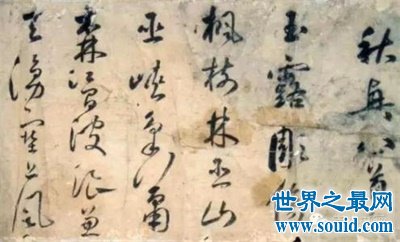 秋興八首
玉露彫傷
楓樹林巫山
巫峽氣蕭
森江間波浪兼
天湧塞上風
世界之最网
www.souid.com